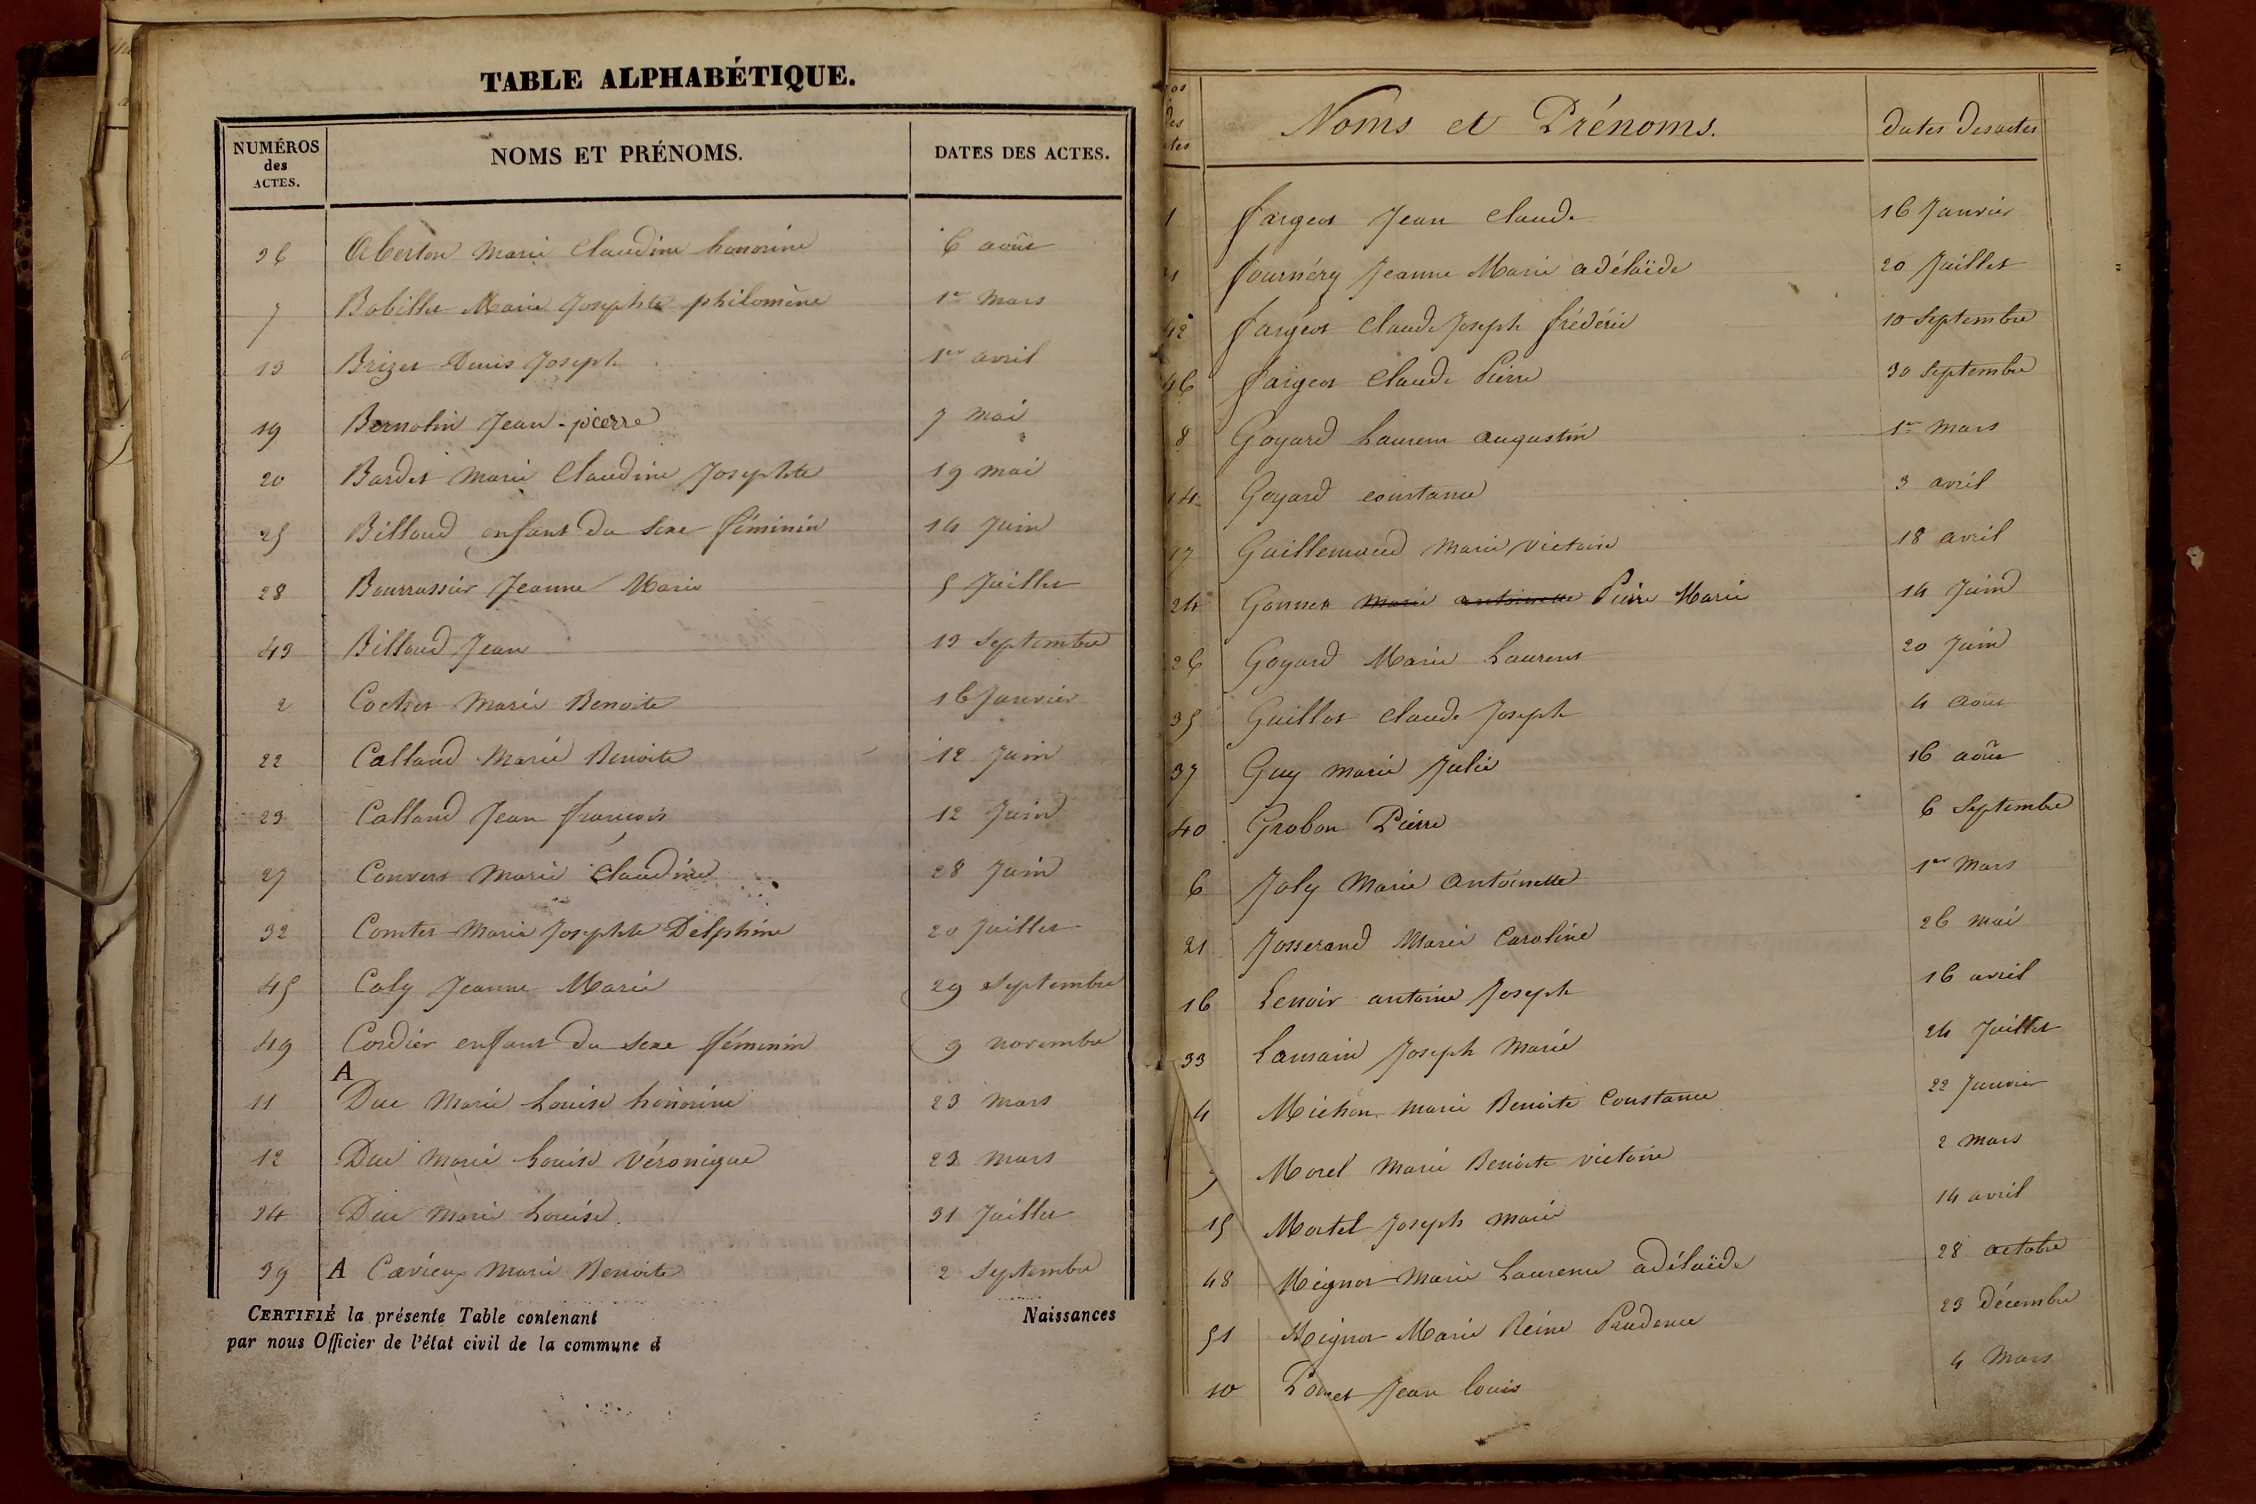 TABLE ALPHABÉTIQUE.
NUMÉROS des ACTES. NOMS ET PRÉNOMS. DATES DES ACTES.
36 Aberton Marie Claudine honorine 6 août
7 Bobillet Marie Josephte philomène 1er Mars
13 Brizet Denis Joseph 1er avril
19 Bernolin Jean-pierre 7 Mai
20 Bardet Marie Claudine Josephte 19 mai
25 Billoud enfant du Sexe féminin 14 Juin
28 Bourrassier Jeanne Marie 5 Juillet
43 Billoud Jean 13 Septembre
2 Cochet Marie Benoite 16 Janvier
22 Calland Marie Benoite 12 Juin
23 Calland Jean françois 12 Juin
27 Convert Marie Claudine 28 Juin
32 Comtet Marie Josephte Delphine 20 Juillet
45 Coly Jeanne Marie 29 Septembre
49 Cordier enfant du Sexe féminin 9 novembre
A
11 Duc Marie Louise honorine 23 Mars
12 Duc Marie Louise Véronique 23 mars
34 Duc Marie Louise 31 Juillet
39 A Cavieux Marie Benoite 2 Septembre
CERTIFIÉ la présente Table contenant Naissances
par nous Officier de l'état civil de la commune d
Nos des actes Noms et Prénoms. Dates des actes
1 fargeot Jean Claude 16 Janvier
31 fournéry Jeanne Marie adélaïde 20 Juillet
42 fargeot Claude Joseph frédéric 10 Septembre
46 fargeot Claude Pierre 30 Septembre
8 Goyard Laurent augustin 1er Mars
14 Goyard constance 3 avril
17 Guillemaud Marie victoire 18 avril
24 Gonnet Marie antoinette Pierre Marie 14 Juin
26 Goyard Marie Laurent 20 Juin
35 Guillot Claude Joseph 4 Août
37 Guy Marie Julie 16 août
40 Grobon Pierre 6 Septembre
6 Joly Marie Antoinette 1er Mars
21 Josserand Marie Caroline 26 mai
16 Lenoir antoine Joseph 16 avril
33 Lansain Joseph Marie 24 Juillet
4 Michon Marie Benoite Constance 22 Janvier
Morel Marie Benoite victoire 2 Mars
15 Mortel Joseph Marie 14 avril
48 Mignot Marie Laurence adélaïde 28 octobre
51 Mignot Marie Reine Prudence 23 décembre
10 Jean Louis 4 Mars